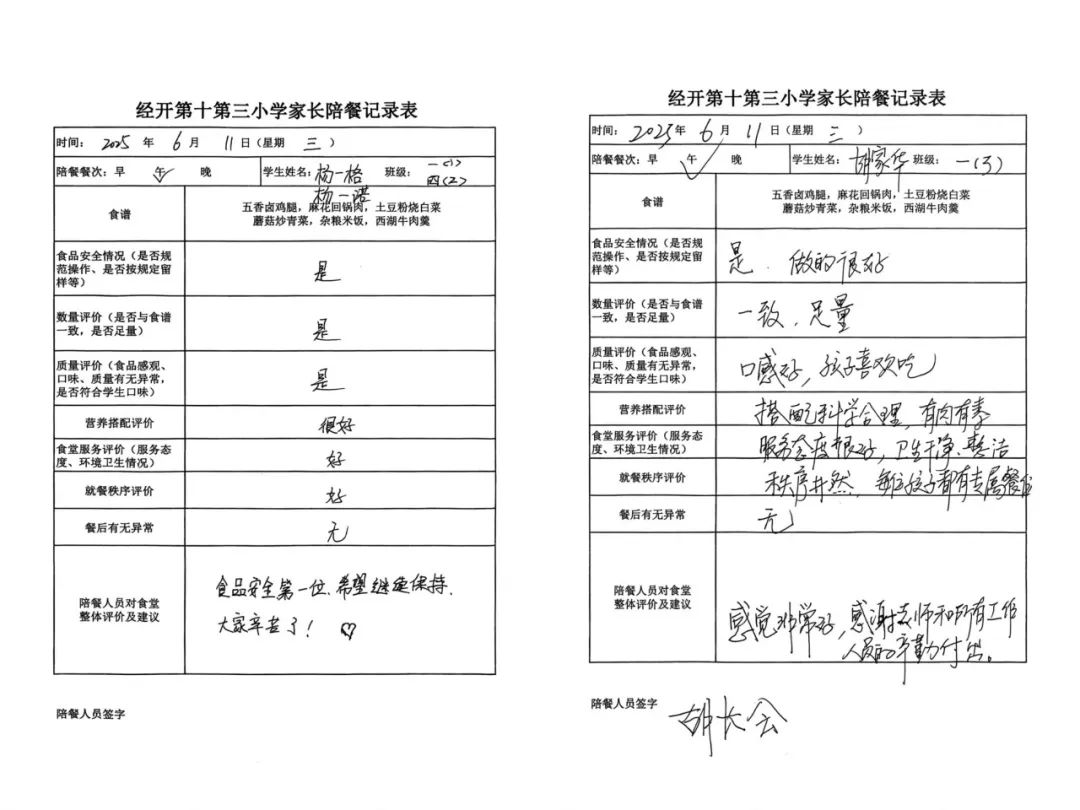 经开第十第三小学家长陪餐记录表
时间： 2025 年 6 月 11 日（星期 三 ）
陪餐餐次：早 午 ✓ 晚 学生姓名：杨一格 杨一诺 班级： 一（1） 四（2）
食谱
五香卤鸡腿，麻花回锅肉，土豆粉烧白菜
蘑菇炒青菜，杂粮米饭，西湖牛肉羹
食品安全情况（是否规
范操作、是否按规定留
样等）
是
数量评价（是否与食谱
一致，是否足量）
是
质量评价（食品感观、
口味、质量有无异常，
是否符合学生口味）
是
营养搭配评价 很好
食堂服务评价（服务态
度、环境卫生情况）
好
就餐秩序评价 好
餐后有无异常 无
陪餐人员对食堂
整体评价及建议
食品安全第一位、希望继续保持.
大家辛苦了！ ♡
陪餐人员签字
经开第十第三小学家长陪餐记录表
时间： 2025年 6 月 11 日（星期 三 ）
陪餐餐次：早 午 ✓ 晚 学生姓名：胡家华 班级： 一（3）
食谱
五香卤鸡腿，麻花回锅肉，土豆粉烧白菜
蘑菇炒青菜，杂粮米饭，西湖牛肉羹
食品安全情况（是否规
范操作、是否按规定留
样等）
是、做的很好
数量评价（是否与食谱
一致，是否足量）
一致、足量
质量评价（食品感观、
口味、质量有无异常，
是否符合学生口味）
口感好，孩子喜欢吃
营养搭配评价 搭配科学合理，有肉有素
食堂服务评价（服务态
度、环境卫生情况）
服务态度很好，卫生干净、整洁
就餐秩序评价 秩序井然，每位孩子都有专属餐位
餐后有无异常 无
陪餐人员对食堂
整体评价及建议
感觉非常好，感谢老师和所有工作
人员的辛勤付出。
陪餐人员签字 胡长会